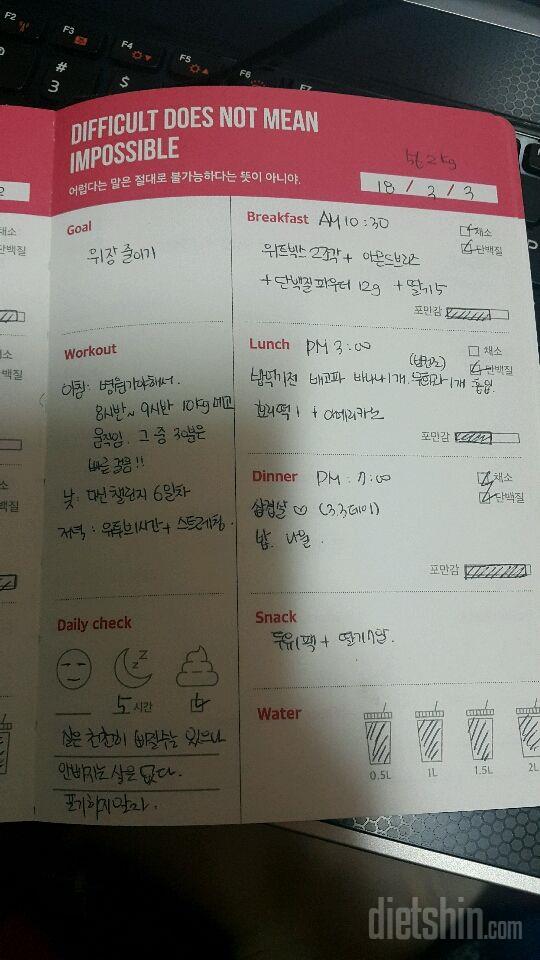 F2
F3
F4
F5
F6
F7
#
3
$
DIFFICULT DOES NOT MEAN
IMPOSSIBLE
어렵다는 말은 절대로 불가능하다는 뜻이 아니야.
18 / 3 / 3
Goal
위장 줄이기
Workout
아침: 병원가야해서.
8시반~ 9시반 10kg 메고
움직임. 그 중 30분은
빠른 걸음!!
낮: 다신챌린지 6일차
저녁: 유튜브1시간 + 스트레칭.
Daily check
5 시간
살은 천천히 빠질수는 있으나
안빠지는 살은 없다.
포기하지말자.
Breakfast AM 10:30
채소
단백질
+ 아몬드브리즈
+ 단백질파우더 12g + 딸기5
포만감
Lunch PM 3:00
채소
단백질
배고파 바나나1개.
호떡 1 + 아메리카노
포만감
Dinner PM : 7:00
채소
단백질
삼겹살 ♡ (3.3데이)
밥. 나물.
포만감
Snack
두유1팩 + 딸기7알.
Water
0.5L
1L
1.5L
2L
dietshin.com